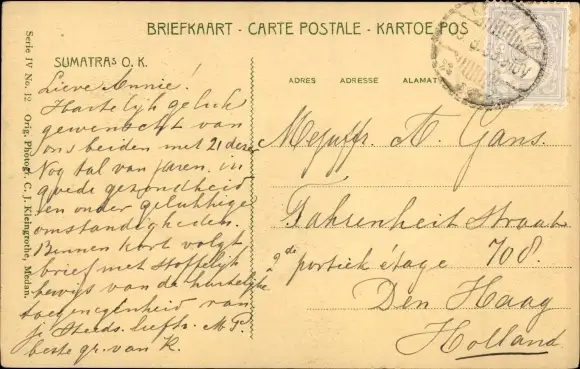 BRIEFKAART - CARTE POSTALE - KARTOE POS
SUMATRAs O. K.
ADRES ADRESSE ALAMAT
Serie IV No. 12 Orig. Photogr. C. J. Kleingrothe, Medan.
Lieve Annie!
Hartelijk geluk
gewenscht van
ons beiden met 21 dezer
Nog tal van jaren in
goede gezondheid
en onder gelukkige
omstandigheden.
Binnen kort volgt
brief met stoffelijk
bewijs van de hartelijke
toegenegenheid van
je steeds liefh. M P.
beste gr. van K.
Mejuffr. A. Gans.
Fahrenheit Straat
708
portiek étage
Den Haag
Holland